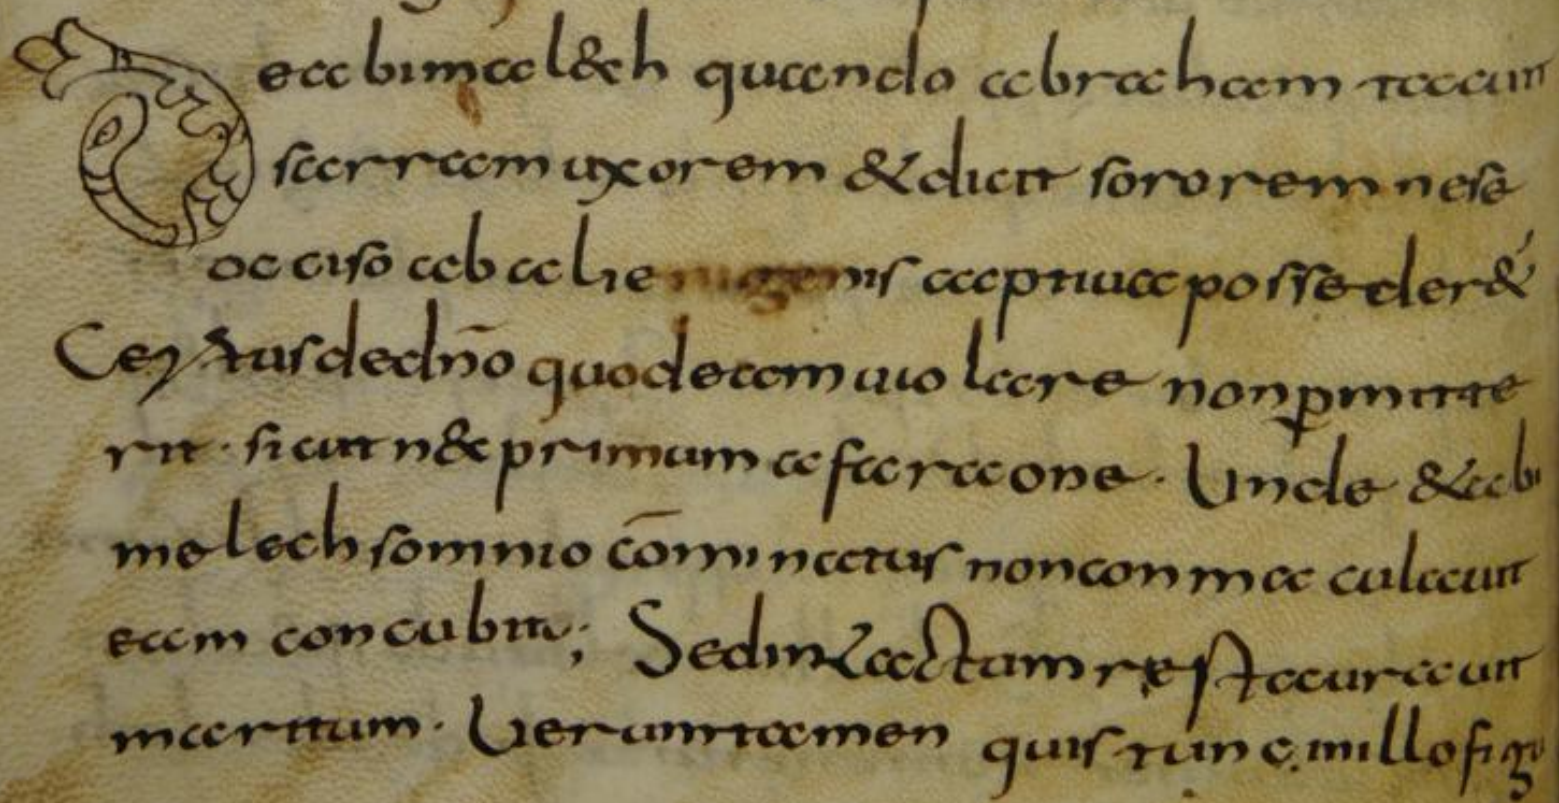 De abimalech quando abraham tacuit
sarram uxorem & dicit sororem ne se
occiso ab alienigenis acaptiua posseder&
Certus de dn̄o quod eam uiolare non p̱mitte
rit · sicut n& primum a faraone · Unde & abi
melech somnio cōminatus non conmaculauit
eam concubitu; Sed intactam restaurauit
maritum · Uerumtamen quis tunc in illo figu